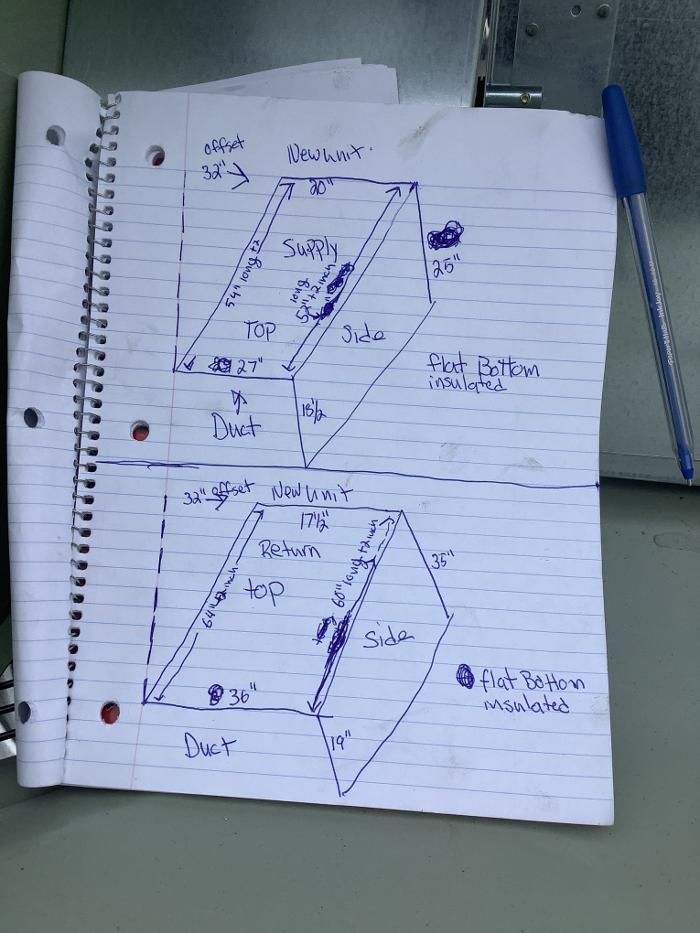 offset
32"
New unit.
20"
Supply
54" long +2
long
52" +2 inch
25"
TOP
Side
27"
flat Bottom
insulated
Duct
18 1/2
32" offset
New unit
17 1/2"
Return
top
64" +2 inch
60" long +2 inch
35"
Side
36"
flat Bottom
insulated
Duct
19"